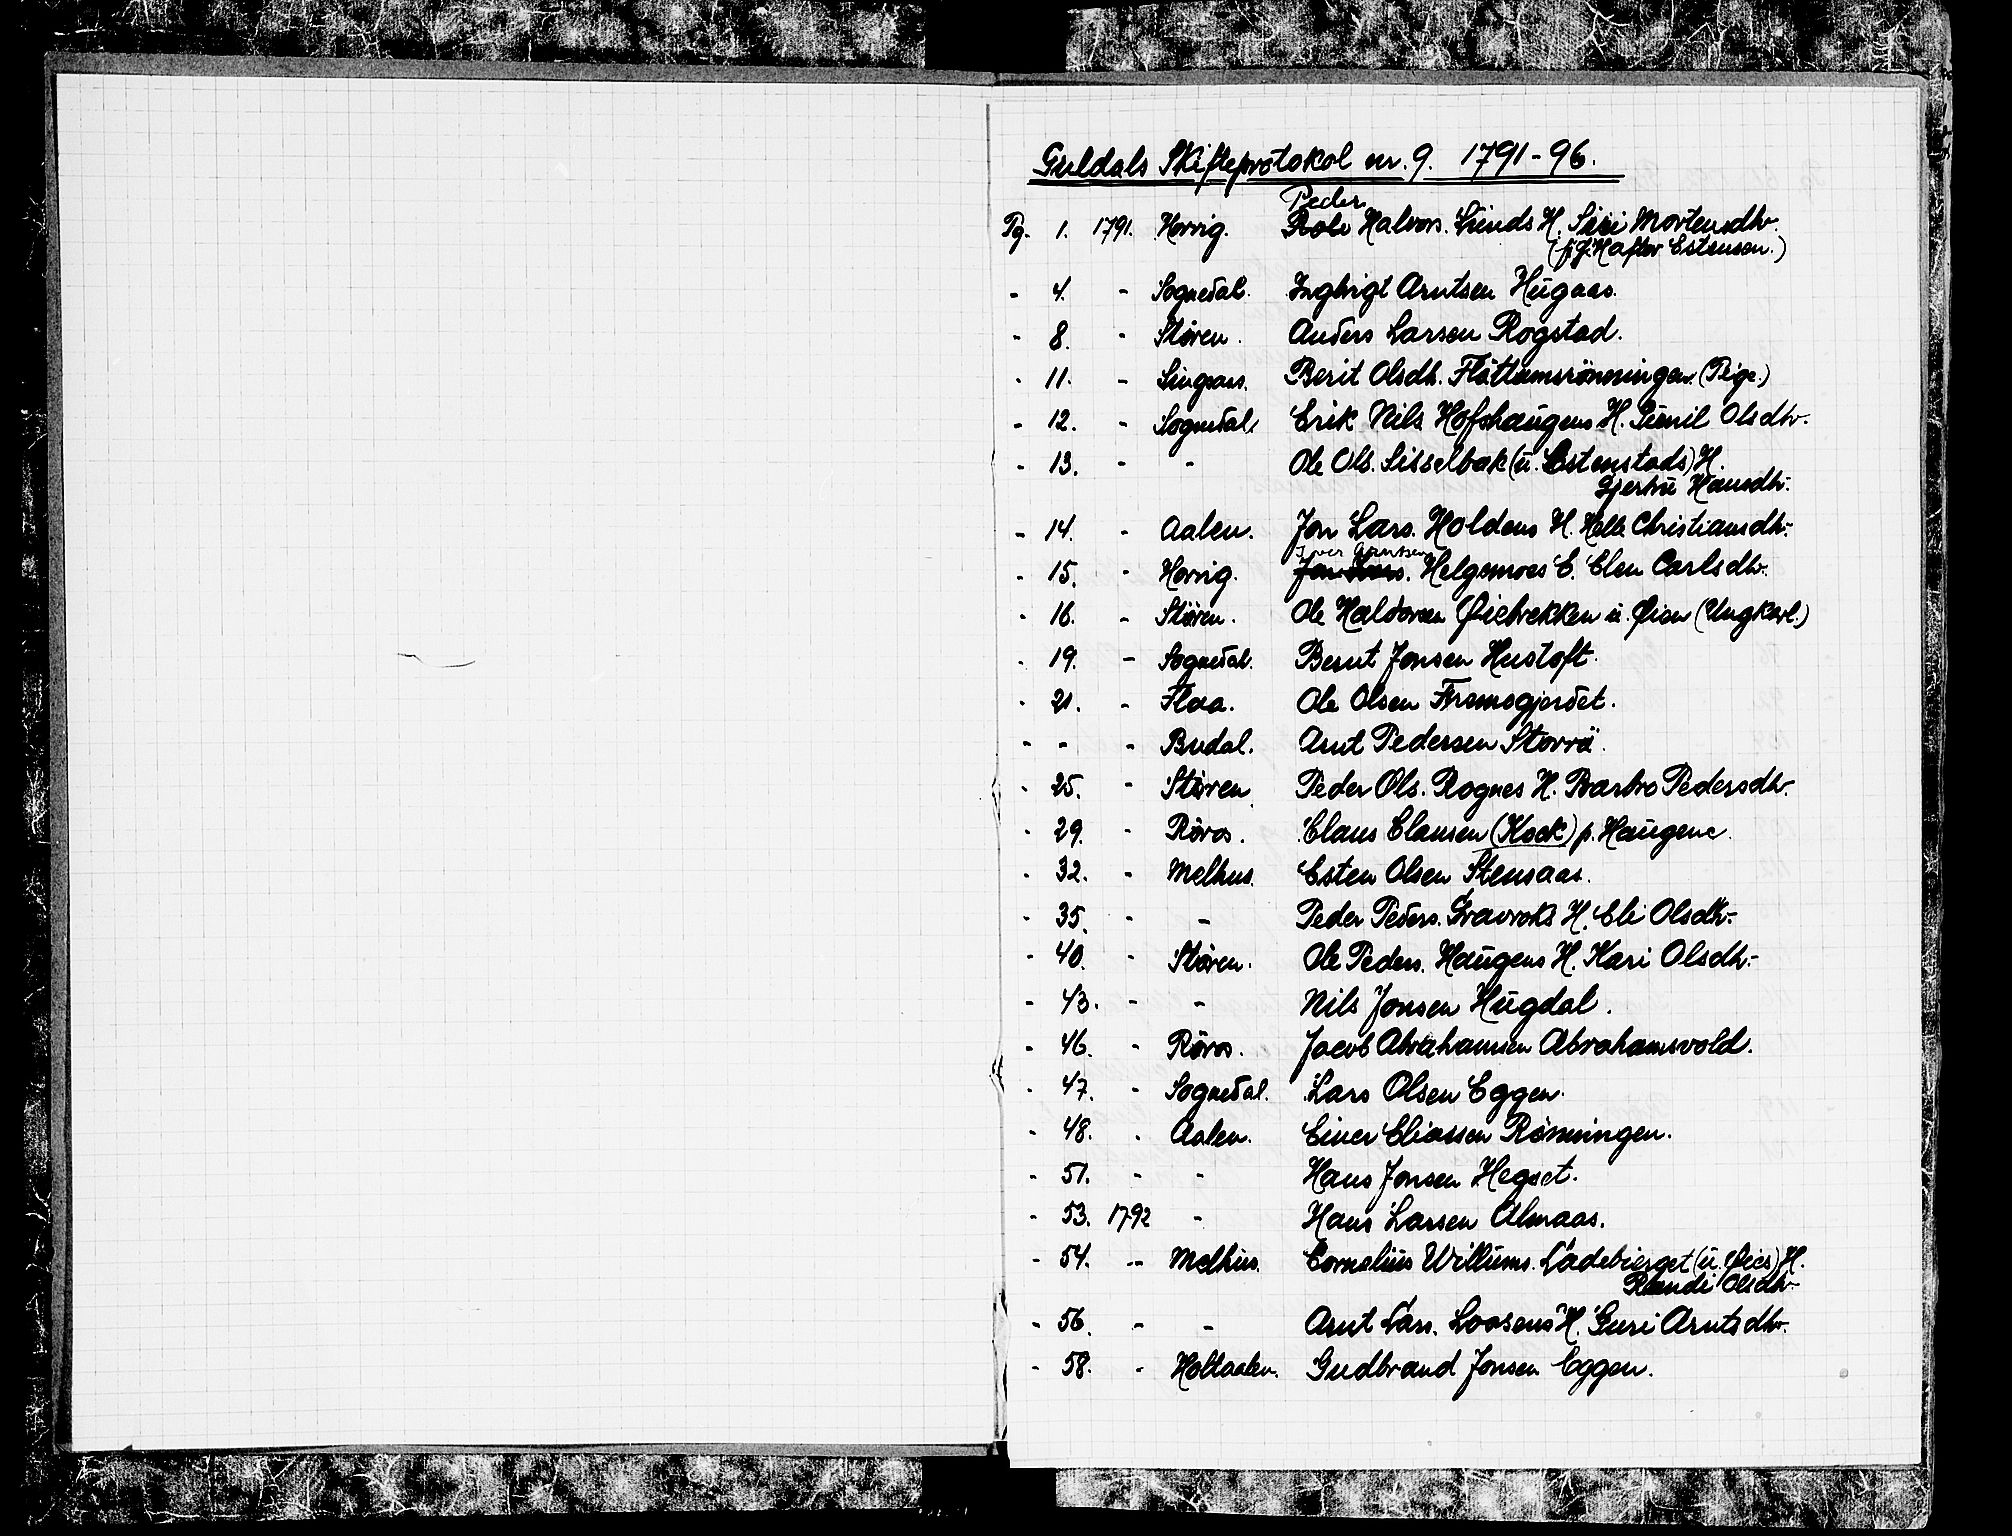 Guldals Skifteprotokol nr. 9. 1791-96.
Peder
Pg. 1. 1791. Horrig. Halvors. Lunds H. Siri Mortensdtr.
(f. g. Hafter Estensen.)
- 4. - Sognedal. Ingbrigt Arntsen Hŭgaas.
- 8. - Støren. Anders Larsen Rogstad.
- 11. - Singsaas. Berit Olsdtr. Flåttamsrönningen (Pige.)
- 12. - Sognedal. Erik Nils Hofshaŭgens H. Gŭnil Olsdtr.
- 13. - - Ole Ols. Sisselbak (ŭ. Estenstads) H.
Gjertrŭ Hansdtr.
- 14. - Aalen. Jon Lars. Holdens H. Christiansdtr.
Iver Arntsen
- 15. - Horrig. Jon Lars. Helgemoes E. Elen Carlsdtr.
- 16. - Støren. Ole Haldorsen Øiebrekken ŭ. Øien (Ungkarl.)
- 19. - Sognedal. Bernt Jonsen Hustoft.
- 21. - Flaa. Ole Olsen Framsgjerdet.
- - - Budal. Arnt Pedersen Storrö.
- 25. - Støren. Peder Ols. Rognes H. Barbro Pedersdtr.
- 29. - Røros. Claus Clausen (Kock) p. Haŭgene.
- 32. - Melhus. Esten Olsen Stensaas.
- 35. - - Peder Peders. Gravroks H. Eli Olsdtr.
- 40. - Støren. Ole Peders. Haŭgens H. Kari Olsdtr.
- 43. - - Nils Jonsen Hŭgdal.
- 46. - Røros. Jacob Abrahamsen Abrahamsvold.
- 47. - Sognedal. Lars Olsen Eggen.
- 48. - Aalen. Einer Eliassen Rønningen.
- 51. - - Hans Jonsen Hegset.
- 53. 1792 - Hans Larsen Almaas.
- 54. - Melhŭs. Cornelius Willŭms. Ladebierget (ŭ. Øies) H.
Randi Olsdtr.
- 56. - - Arnt Lars. Loosens H. Guri Arntsdtr.
- 58. - Holtaalen. Gudbrand Jonsen Eggen.